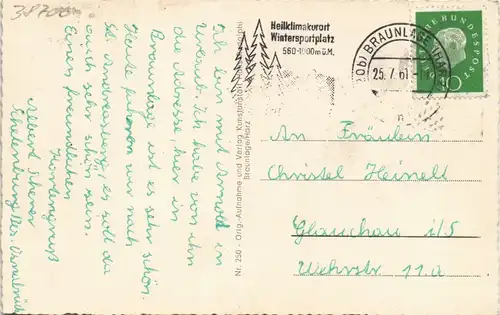 38700
Heilklimakurort
Wintersportplatz
560-1000m ü.M.
(20b) BRAUNLAGE (HARZ)
25.7.61
DEUTSCHE BUNDESPOST
10
Ich bin mit Arnold in
Urlaub. Ich habe von ihm
die Adresse, hier in
Braunlage ist es sehr schön.
Heute fahren wir nach
St. Andreasberg, es soll da
auch sehr schön sein.
Einen freundlichen
Kartengruß
Albert
An Fräulein
Christel Heinelt
Glauchau i/S
Wehrstr. 11.a
Nr. 250 - Orig.-Aufnahme und Verlag Kunstanstalt
Braunlage/Harz